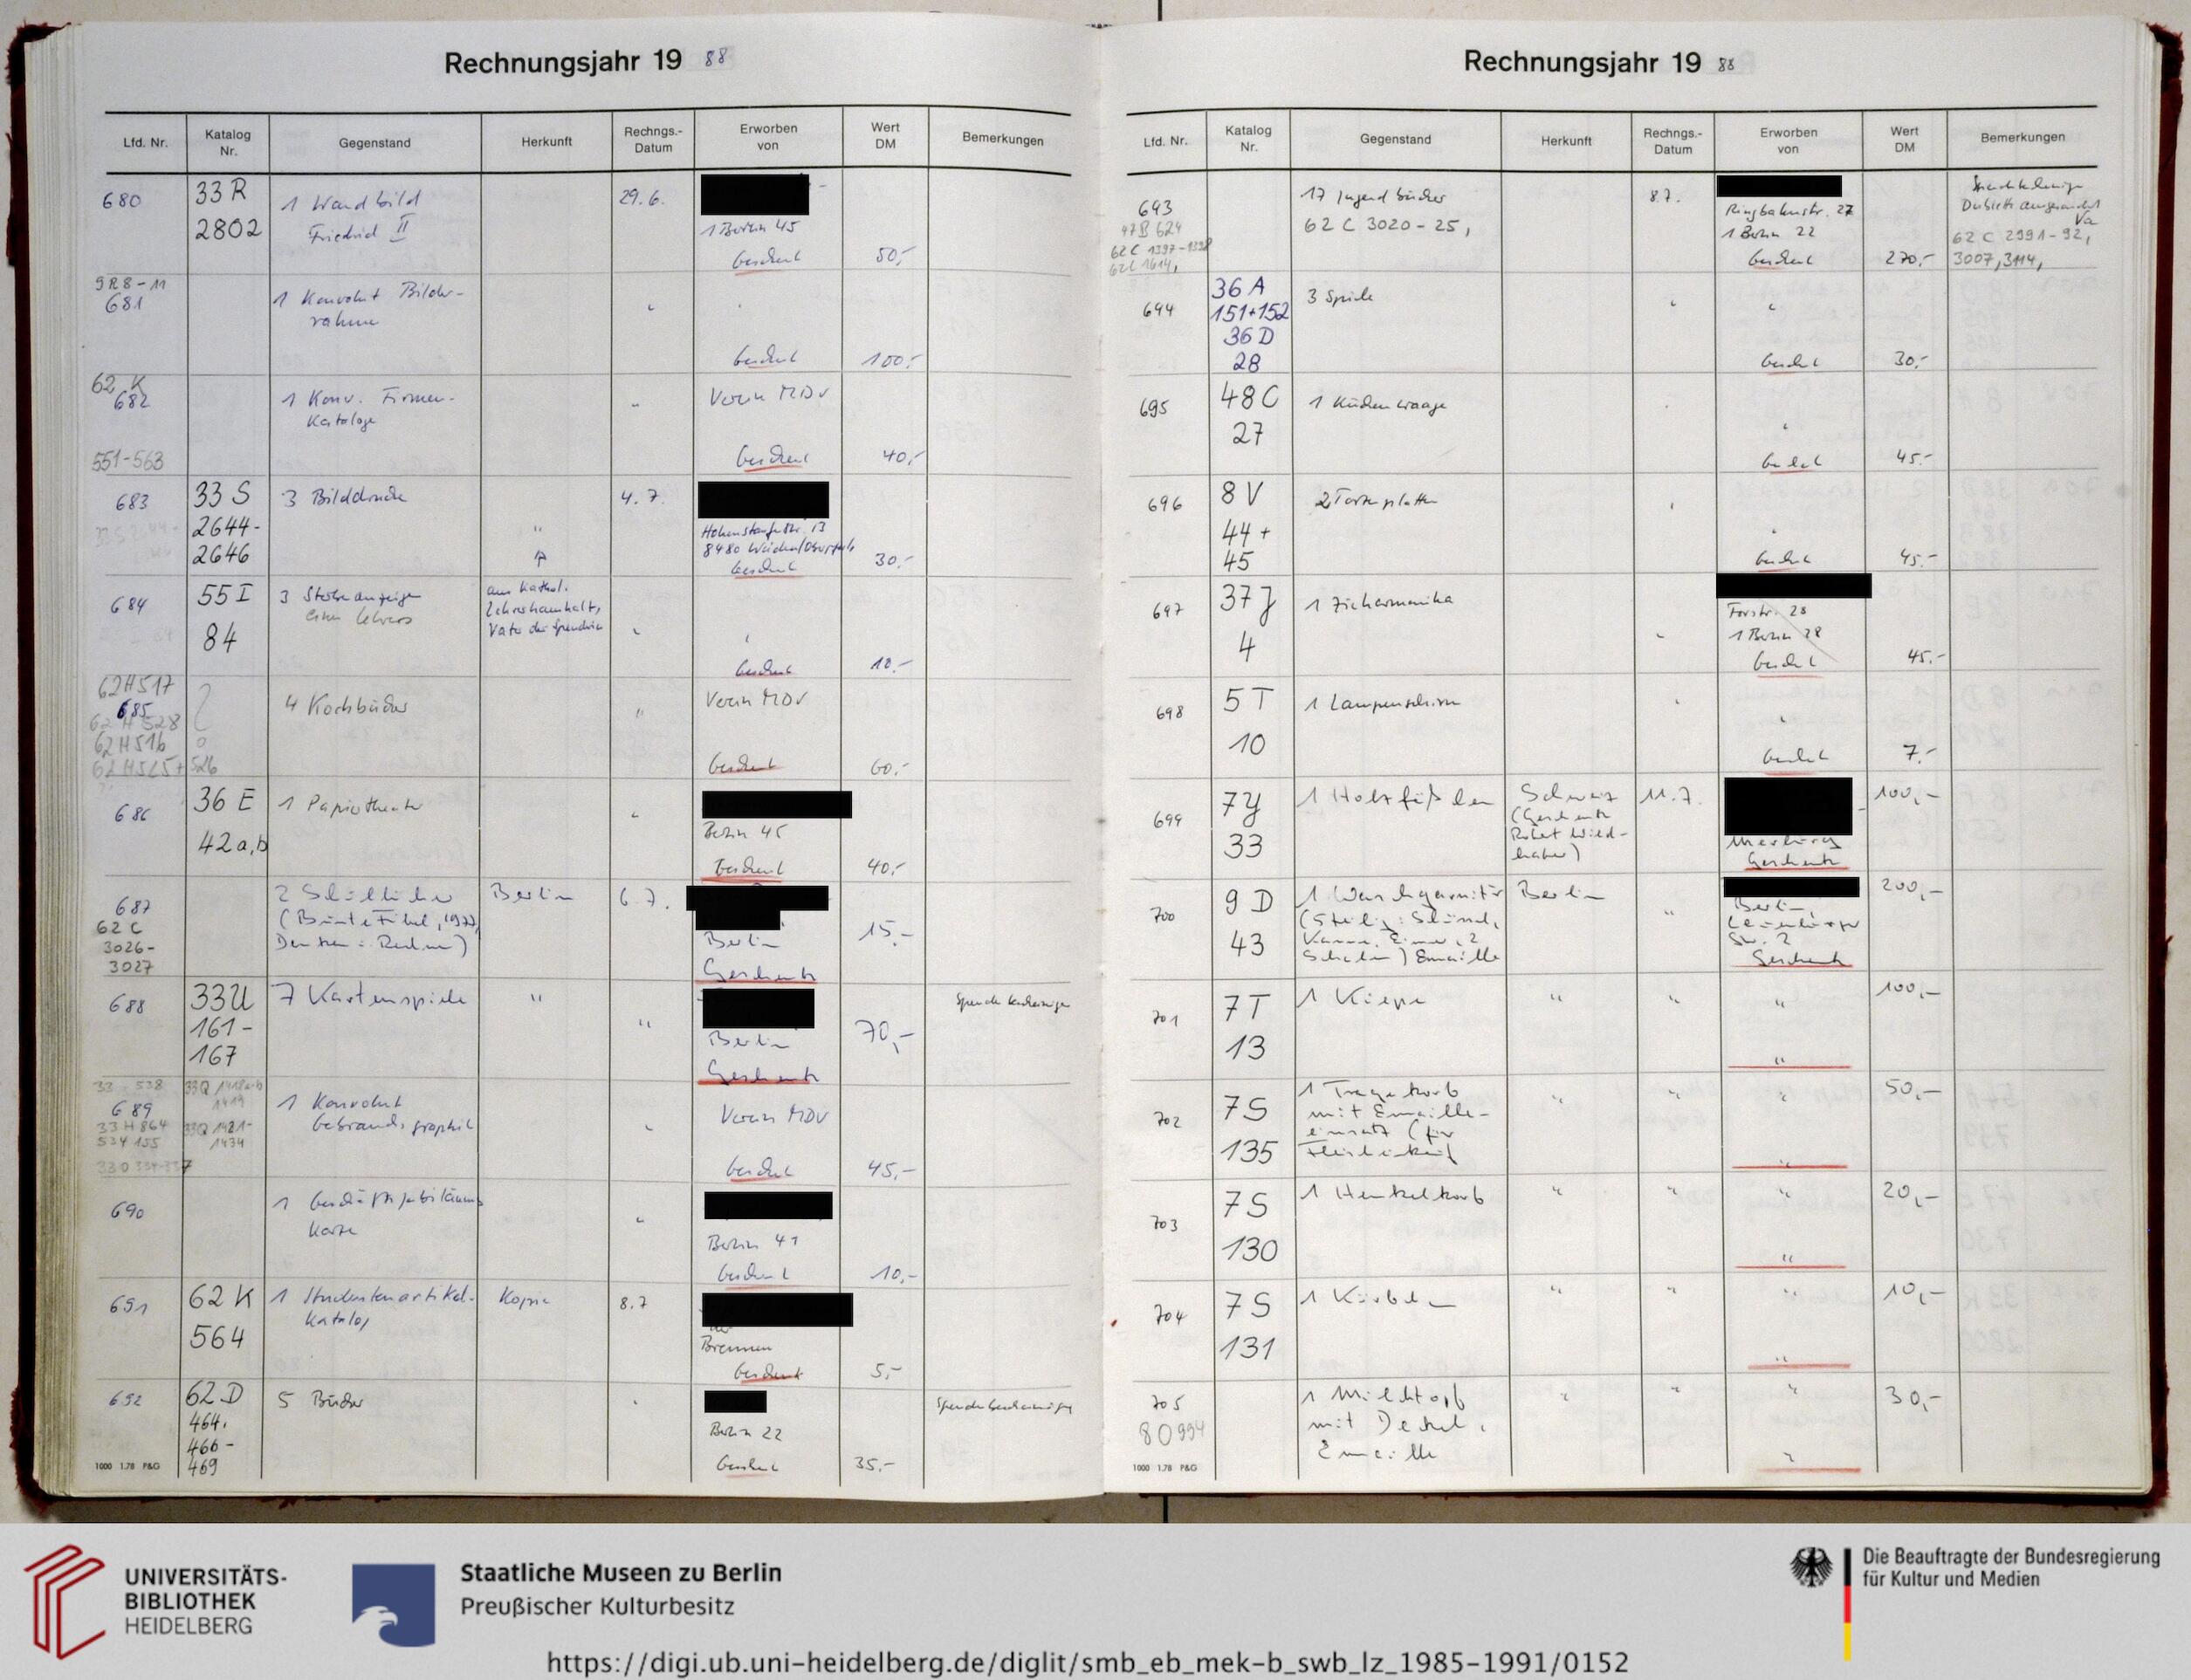 Rechnungsjahr 19 88
Lfd. Nr. Katalog Nr. Gegenstand Herkunft Rechngs.-Datum Erworben von Wert DM Bemerkungen
680 33 R 1 Wandbild 29.6.
2802 Friedrich II 1 Berlin 45
Geschenk 50,-
9R8-11
681 1 Konvolut Bilder- "
rahmen
Geschenk 100,-
62 K
682 1 Konv. Firmen- " Verein MDV
Kataloge
551-563 Geschenk 40,-
683 33 S 3 Bilddrucke 4.7.
2644- " Hohenstaufenstr. 13
2646 8480 Weiden/Oberpfalz
Geschenk 30,-
684 55 I 3 Sterbeanzeigen aus kathol.
eines Lehrers Lehrerhaushalt,
84 Vater der Spenderin " "
Geschenk 10,-
62H517
685 4 Kochbücher " Verein MDV
62 H 528
62 H 516
62 H 525+526 Geschenk 60,-
686 36 E 1 Papiertheater "
42a,b Berlin 45
Geschenk 40,-
687 2 Schulbücher Berlin 6.7.
62 C (Bunte Fibel, 1977, 15,-
3026- Denken u. Rechnen) Berlin
3027 Geschenk
688 33U 7 Kartenspiele " Spendenbescheinigung
161- " 70,-
167 Berlin
Geschenk
33 538 33Q 1418a-b
1419
689 1 Konvolut Verein MDV
33 H 864 33Q 1421- Gebrauchsgraphik "
534 155 1434
Geschenk 45,-
690 1 Geschäftsjubiläums
karte "
Berlin 41
Geschenk 10,-
691 62 K 1 Studentenartikel- Kopie 8.7
564 Katalog
Bremen
Geschenk 5,-
692 62 D 5 Bücher " Spendenbescheinigung
464,
466- Berlin 22
469 Geschenk 35,-
1000 1.78 P&G
Rechnungsjahr 19 88
Lfd. Nr. Katalog Nr. Gegenstand Herkunft Rechngs.-Datum Erworben von Wert DM Bemerkungen
693 17 Jugendbücher 8.7.
47B 624 62 C 3020-25, Ringbahnstr. 27
62 C 1397-1398 1 Berlin 22 62 C 2991-92,
62C 1614, Geschenk 270,- 3007, 3114,
694 36 A 3 Spiele " "
151+152
36 D
28 Geschenk 30,-
695 48 C 1 Küchenwaage " "
27
Geschenk 45,-
696 8 V 2 Tortenplatten " "
44+
45 Geschenk 45,-
697 37 J 1 Ziehharmonika
4 " Forstr. 28
1 Berlin 28
Geschenk 45,-
698 5 T 1 Lampenschirm " "
10
Geschenk 7,-
699 7Y 1 Holzfäßchen Schweiz 11.7. 100,-
33 (Geschenk
Robert Wild-
haber) Geschenk
700 9 D 1 Waschgarnitur Berlin " 200,-
43 (5teilig: Schüssel, Berlin,
Kanne, Eimer, 2 Str. 2
Schalen) Emaille Geschenk
701 7T 1 Kiepe " " " 100,-
13 "
702 7S 1 Tragekorb " " " 50,-
135 mit Emaille-
einsatz (für
Fleischeinkauf "
703 7S 1 Henkelkorb " " " 20,-
130 "
704 7S 1 Körbchen " " " 10,-
131 "
705 1 Milchtopf " " " 30,-
80994 mit Deckel,
Emaille "
1000 1.78 P&G
UNIVERSITÄTS-
BIBLIOTHEK
HEIDELBERG
Staatliche Museen zu Berlin
Preußischer Kulturbesitz
Die Beauftragte der Bundesregierung
für Kultur und Medien
https://digi.ub.uni-heidelberg.de/diglit/smb_eb_mek-b_swb_lz_1985-1991/0152